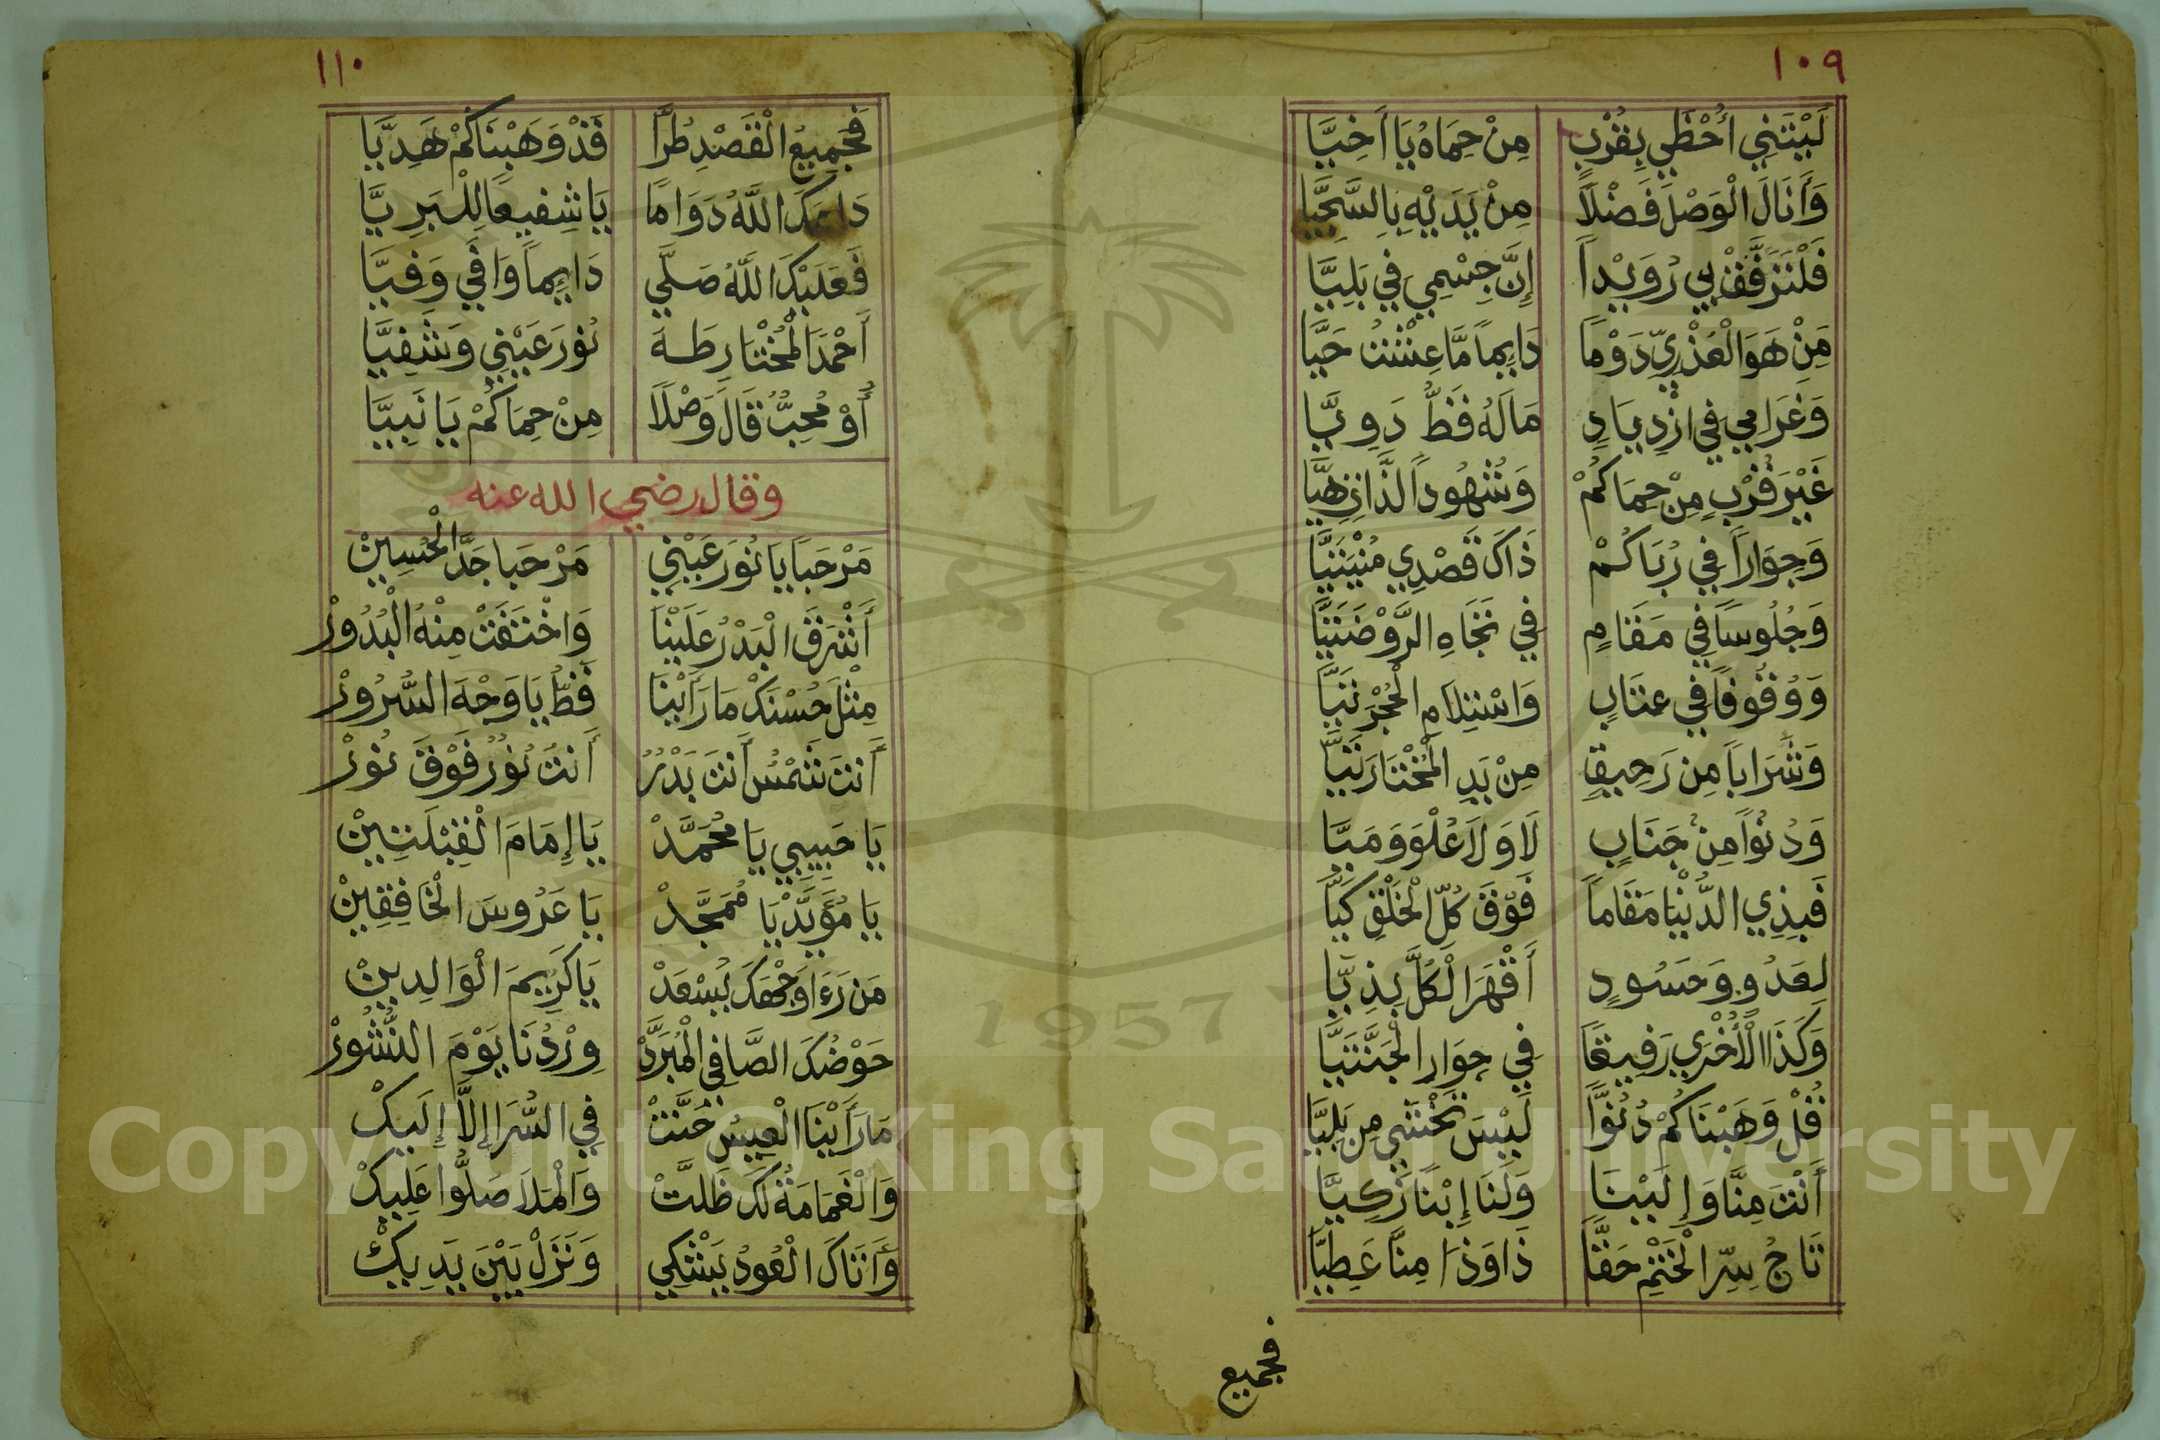 ١٠٩
لَيْتَنِي أُحْظَي بِقُرْبٍ مِنْ حِمَاهُ يَا أَخِيَّا
وَأَنَالَ الْوَصْلَ فَضْلاً مِنْ يَدَيْهِ بِالسَّجِيَّا
فَلْتَرَفَّقْ بِي رُوَيْداً إِنَّ جِسْمِي فِي بَلِيَّا
مِنْ هَوَا الْعُذْرِيِّ دَوْمًا دَايِماً مَّا عِشْتُ حَيَّا
وَغَرَامِي فِي ازْدِيَادٍ مَالَهُ قَطُّ دَوِيَّا
غَيْرَ قُرْبٍ مِنْ حِمَاكُمْ وَشُهُوداً لِذَّاتِ هِيَّا
وَجِوَاراً فِي رُبَاكُمْ ذَاكَ قَصْدِي مُنْيَتَيَّا
وَجُلُوسًا فِي مَقَامٍ فِي تَجَاهِ الرَّوْضَتَيَّا
وَوُقُوفًا فِي عتَابٍ وَاسْتِلاَمِ الْحُجْرَتَيَّا
وَشَرَابًا مِن رَحِيقٍ مِنْ يَدِ الْمُخْتَارِ تَيَّا
وَدُنُوّاً مِنْ جَنَابٍ لاَ وَلاَ عُلْوَ وَمَيَّا
فَبِذِي الدُّنْيَا مَقَاماً فَوْقَ كُلِّ الْخَلْقِ كَيَّا
لِعَدُوٍّ وَحَسُودٍ أَقْهَرَ الْكُلَّ بِذِيَّا
وَكَذَا الْأُخْرَي رَفِيقًا فِي جِوَارِ الْجَنَّتَيَّا
قُلْ وَهَبْنَاكُمْ دُنُوًّا لَيْسَ تَخْشَي مِن بَلِيَّا
أَنْتَ مِنَّا وَإِلَيْنَا وَلَنَا إِبْنًا زَكِيَّا
تَاجُ سِرِّ الْخَتْمِ حَقًّا ذَا وَذَا مِنَّا عَطِيَّا
فجميع
١١٠
فَجَمِيعُ الْقَصْدِ طُرًّا قَدْ وَهَبْنَاكُمْ هَدِيَّا
اللَّهُ دَوَامًا يَا شَفِيعًا لِلْبَرِيَّا
فَعَلَيْكَ اللهُ صَلَّي دَايِماً وَافِي وَفِيَّا
أَحْمَدَ الْمُخْتَارِ طَهَ نُورَ عَيْنِي وَشَفِيَّا
أَوْ مُحِبٌّ قَالَ وَصْلاً مِنْ حِمَاكُمْ يَا نَبِيَّا
وقال رضي الله عنه
مَرْحَبًا يَا نُورَ عَيْنِي مَرْحَبا جَدَّ الْحُسِينْ
أَشْرَقَ الْبَدْرُ عَلَيْنَا وَاخْتَفَتْ مِنْهُ الْبُدُورْ
مِثْلَ حُسْنَكْ مَا رَأَيْنَا قَطُّ يَا وَجْهَ السُّرُورْ
أَنتَ شَمْسٌ أَنتَ بَدْرٌ أَنتَ نُورٌ فَوْقَ نُورْ
يَا حَبِيبِي يَا مُحَمَّدْ يَا إِمَامَ الْقِبْلَتِينْ
يَا مُؤَيَّدْ يَا مُمَجَّدْ يَا عَرُوسَ الْخَافِقِينْ
مَن رَءَا وَجْهَكَ يُسْعَدْ يَا كَرِيمَ الْوَالِدِينْ
حَوْضُكَ الصَّافِي الْمُبَرَّدْ وِرْدُنَا يَوْمَ النُّشُورْ
مَا رَأَيْنَا الْعِيسَ حَنَّتْ فِي السُّرَا إِلَّا إِلَيكْ
وَالْغَمَامَهْ لَكَ ظَلَّتْ وَالْمَلاَ صَلُّوا عَلِيكْ
وَأَتَاكَ الْعُودُ يَبْكِي وَنَزَلْ بَيْنَ يَدِيكْ
1957
Copyright © King Saud University